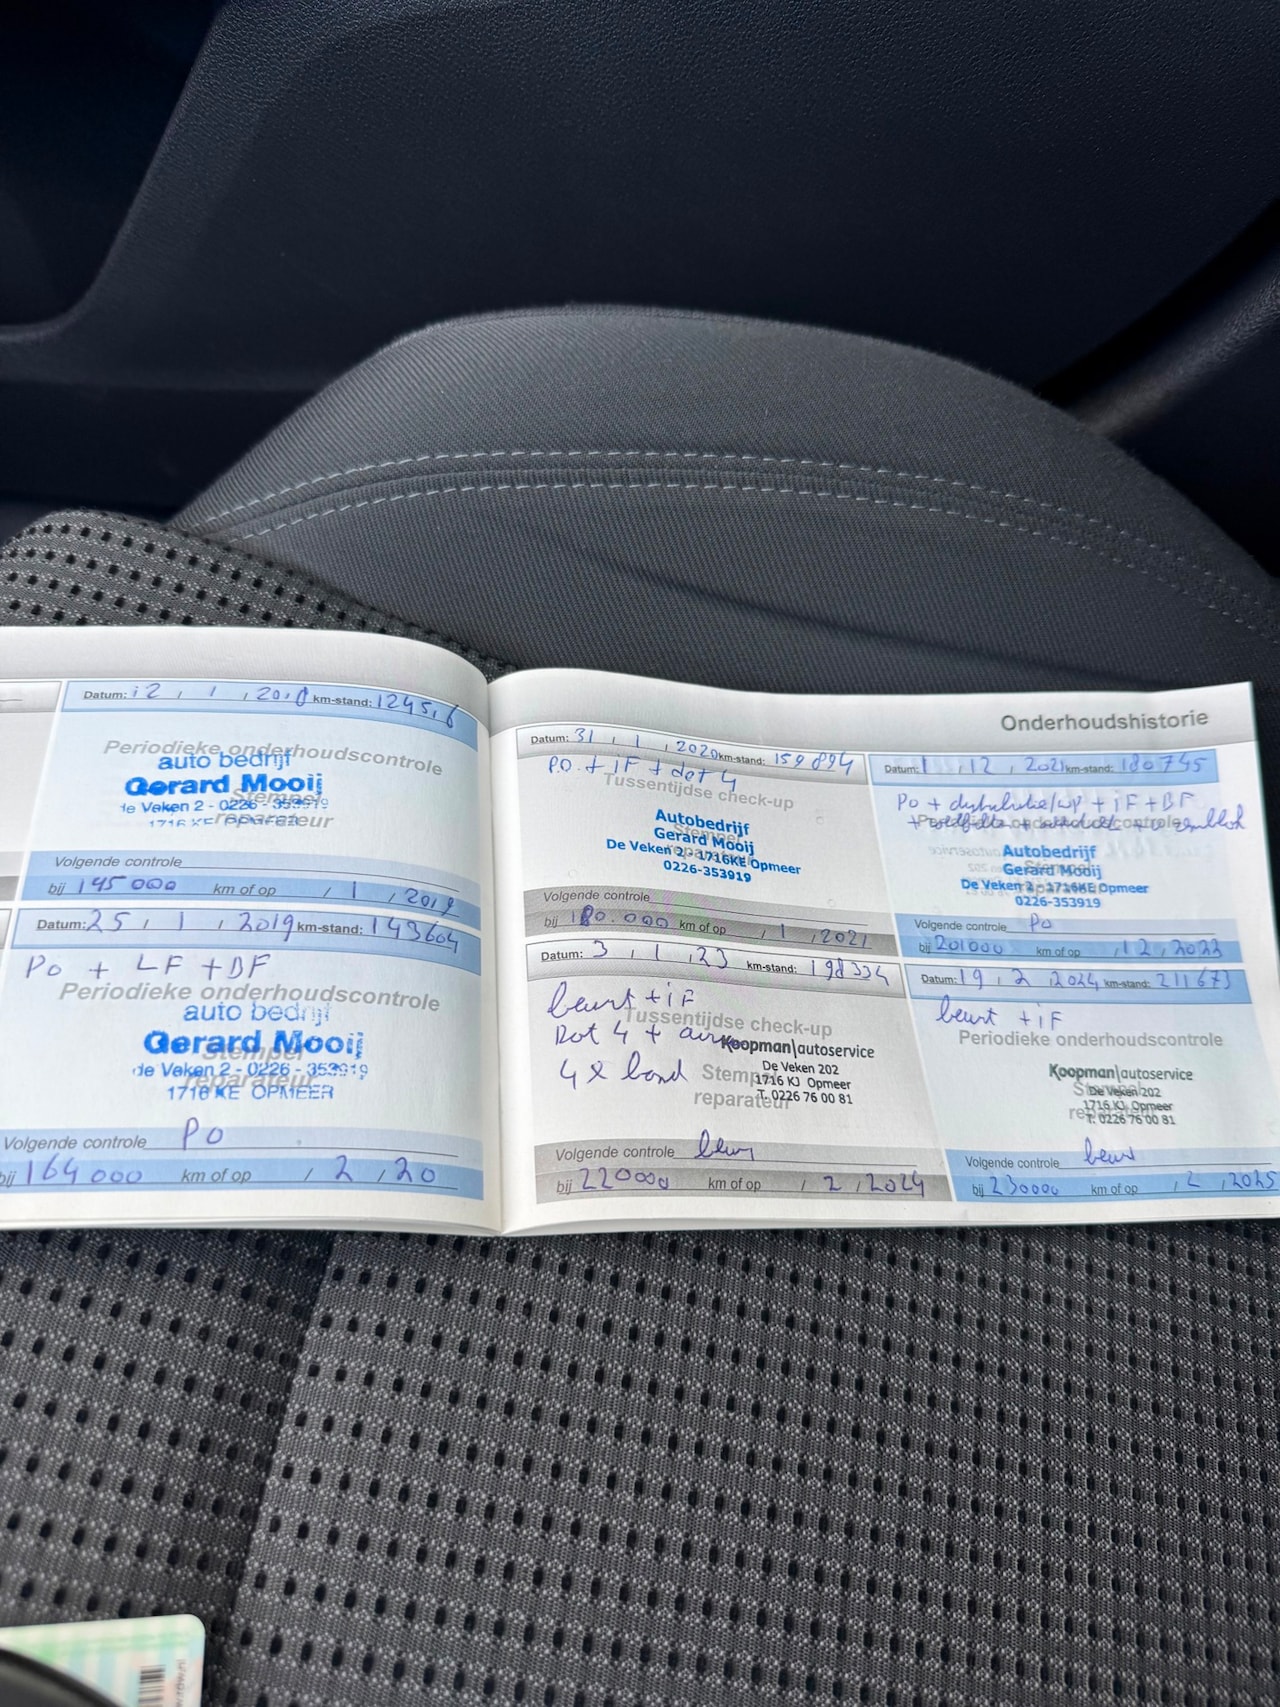 Datum: 12 , 1 , 2018 km-stand:
Periodieke onderhoudscontrole
auto bedrijf
Gerard Mooij
de Veken 2 - 0226 - 353919
1716 KE OPMEER
Stempel
reparateur
Volgende controle
bij 145000 km of op / 1 , 2019
Datum: 25 , 1 , 2019 km-stand: 143604
PO + LF + BF
Periodieke onderhoudscontrole
auto bedrijf
Gerard Mooij
de Veken 2 - 0226 - 353919
1716 KE OPMEER
Stempel
reparateur
Volgende controle PO
bij 164000 km of op / 2 , 20
Onderhoudshistorie
Datum: 31 , 1 , 2020 km-stand: 159894
P.O. + iF + dot 4
Tussentijdse check-up
Autobedrijf
Gerard Mooij
De Veken 2 - 1716KE Opmeer
0226-353919
Stempel
reparateur
Volgende controle
bij 180.000 km of op , 1 , 2021
Datum: 3 , 1 , 23 km-stand: 198334
beurt + iF
Tussentijdse check-up
Dot 4 +
4 x band
Koopman|autoservice
De Veken 202
1716 KJ Opmeer
T. 0226 76 00 81
Stempel
reparateur
Volgende controle beurt
bij 220000 km of op , 2 , 2024
Datum: 1 , 12 , 2021 km-stand: 180745
PO + distributie/wp + iF + BF
Periodieke onderhoudscontrole
Autobedrijf
Gerard Mooij
De Veken 2 - 1716KE Opmeer
0226-353919
Stempel
reparateur
Volgende controle PO
bij 201000 km of op , 12 , 2022
Datum: 19 , 2 , 2024 km-stand: 211673
beurt + iF
Periodieke onderhoudscontrole
Koopman|autoservice
De Veken 202
1716 KJ Opmeer
T. 0226 76 00 81
Stempel
Volgende controle beurt
bij 230000 km of op , 2 , 2025